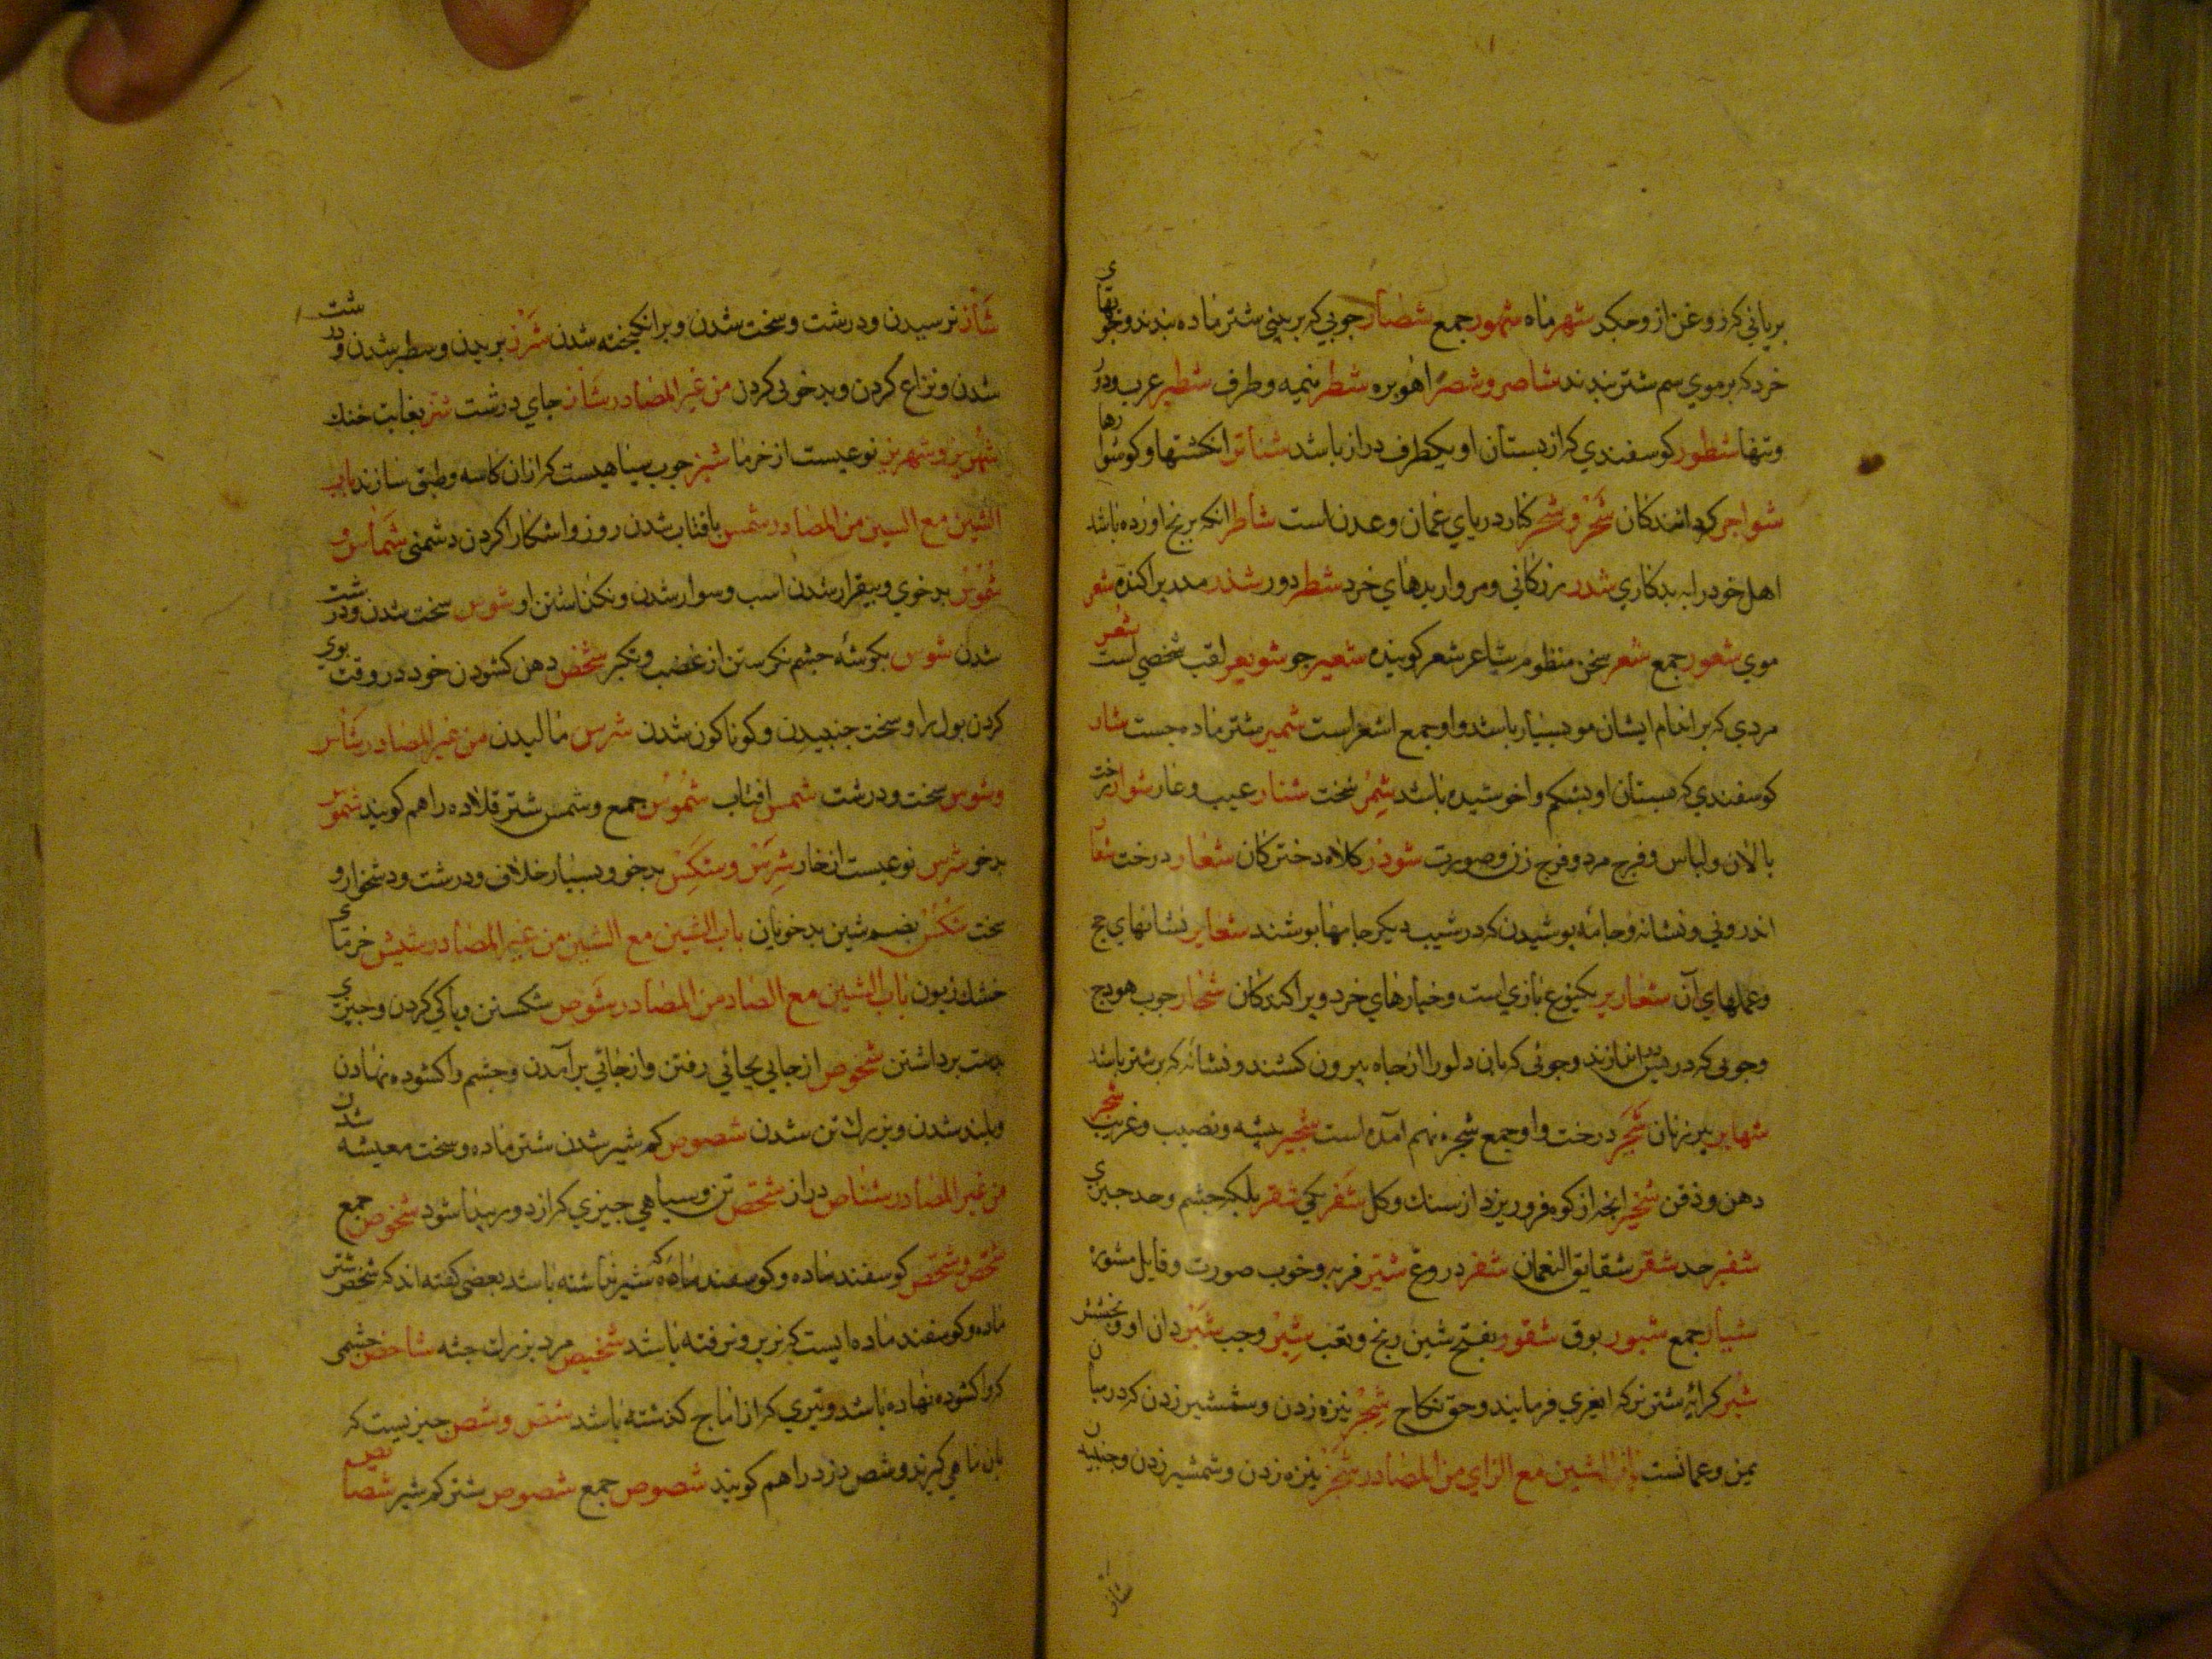 بریانی که روغن از و چکد شهر ماه شهور جمع شصار چوبی که بر بینی شتر ماده بندند و چوبهای
خرد که بر موی سم شتر بندند شاصر و شصر اهوبره شطر نیمه و طرف شطیر غریب و دور
و تنها شطور کوسفندی که از پستان او یکطرف دراز باشد شناتر انکشتها و کوشوارها
شواجر شحر و شحر کنار دریای عمان و عدن است شاطر انکه برنج اورده باشد
اهل خود را به بدکاری شذر زرکانی و مرواریدهای خرد شطر دور شذر مذر پراکنده شعر
موی شعور جمع شعر سخن منظوم شاعر شعر کوینده شعیر جو شویعر لقب شخصی است شعر
مردی که بر اندام ایشان مو بسیار باشد و او جمع اشعر است شمیر شتر ماده چست
کوسفندی که پستان او بشکم وا خوشیده باشد شمر سخت شنار عیب و عار شوار رخت
پالان و لباس و فرج مرد و فرج زن و صورت شوذر کلاه دخترکان شعار درخت شعار
اندرونی و نشانه و جامه پوشیدن که در شیب دیکر جامها پوشند شعایر نشانهای حج
و عملهای آن شعاریر یکنوع بازی است و خیارهای خرد و پراکندکان شجار چوب هودج
و چوبی که در پس در اندازند و چوبی که بان دلو را از چاه بیرون کشند و نشانه که بر شتر باشد
شهابر پیر زنان شجر درخت و او جمع شجره نیز آمده است شجیر بیشه و نصیب و غریب شجر
دهن و ذقن شخیر انچه از کوه فرو ریزد از سنك و کل شفر یکی شفر پلك چشم و حد چیزی
شفیر حد شقر شقایق النعمان شقر دروغ شیر فربه و خوب صورت و قابل مشورة
شیار جمع شبور بوق شقور بفتح شین رنج و تعب شبر وجب شبر دان او و بخشش
شبر کرایه شتر نر که ایغری فرمایند و حق نکاح شجر نیزه زدن و شمشیر زدن که در میان
یمن و عمانست باب الشین مع الزای من المصادر شخز نیزه زدن و شمشیر زدن و جنبیدن
شاز
شأز ترسیدن و درشت و سخت شدن و برانکیخته شدن شرز بریدن و سطبر شدن و درشت
شدن و نزاع کردن و بد خویی کردن من غیر المصادر شأز جای درشت شز بغایت خنك
شهریز و شهریز نوعیست از خرما شیز چوب سیاهیست که از ان کاسه و طبق سازند باب
الشین مع السین من المصادر شمس بافتاب شدن روز و اشکارا کردن دشمنی شماس و
شموس بد خوی و بیقرار شدن اسب و سوار شدن و نکذاشتن او شوس سخت شدن و درشت
شدن شوس بکوشه چشم نکرستن از غضب و تکبر شخس دهن کشودن خود در وقت بوی
کردن بول را و سخت جنبیدن و کوناکون شدن شرس مالیدن من غیر المصادر شأس
و شوس سخت و درشت شمس افتاب شموس جمع و شمس شتر قلاده را هم کویند شموس
بد خو شرس نوعیست از خار شرس و شکس بد خو و بسیار خلاف و درشت و دشخوار و
سخت شکس بضم شین بد خویان باب الشین مع الشین من غیر المصادر شیش خرمای
خشك زبون باب الشین مع الصاد من المصادر شوص شکستن و پاکی کردن و چیزی
بدست برداشتن شخوص از جایی بجائی رفتن و از جائی برآمدن و چشم وا کشوده نهادن
و بلند شدن و بزرك تن شدن شصوص کم شیر شدن شتر ماده و سخت معیشه شدن
من غیر المصادر شناص دراز شخص تن و سیاهی چیزی که از دور پیدا شود شخوص جمع
شحص و شحص کوسفند ماده و کوسفند ماده که شیر نداشته باشد بعضی کفته اند که شحص شتر
ماده و کوسفند ماده ایست که نر برو نرفته باشد شخیص مرد بزرك جثه شاخص چشمی
که وا کشوده نهاده باشد و تیری که از اماج کذشته باشد شص و شص چیزیست که
بان ماهی کیرند و شص دزد را هم کویند شصوص جمع شصوص شتر کم شیر شصایص